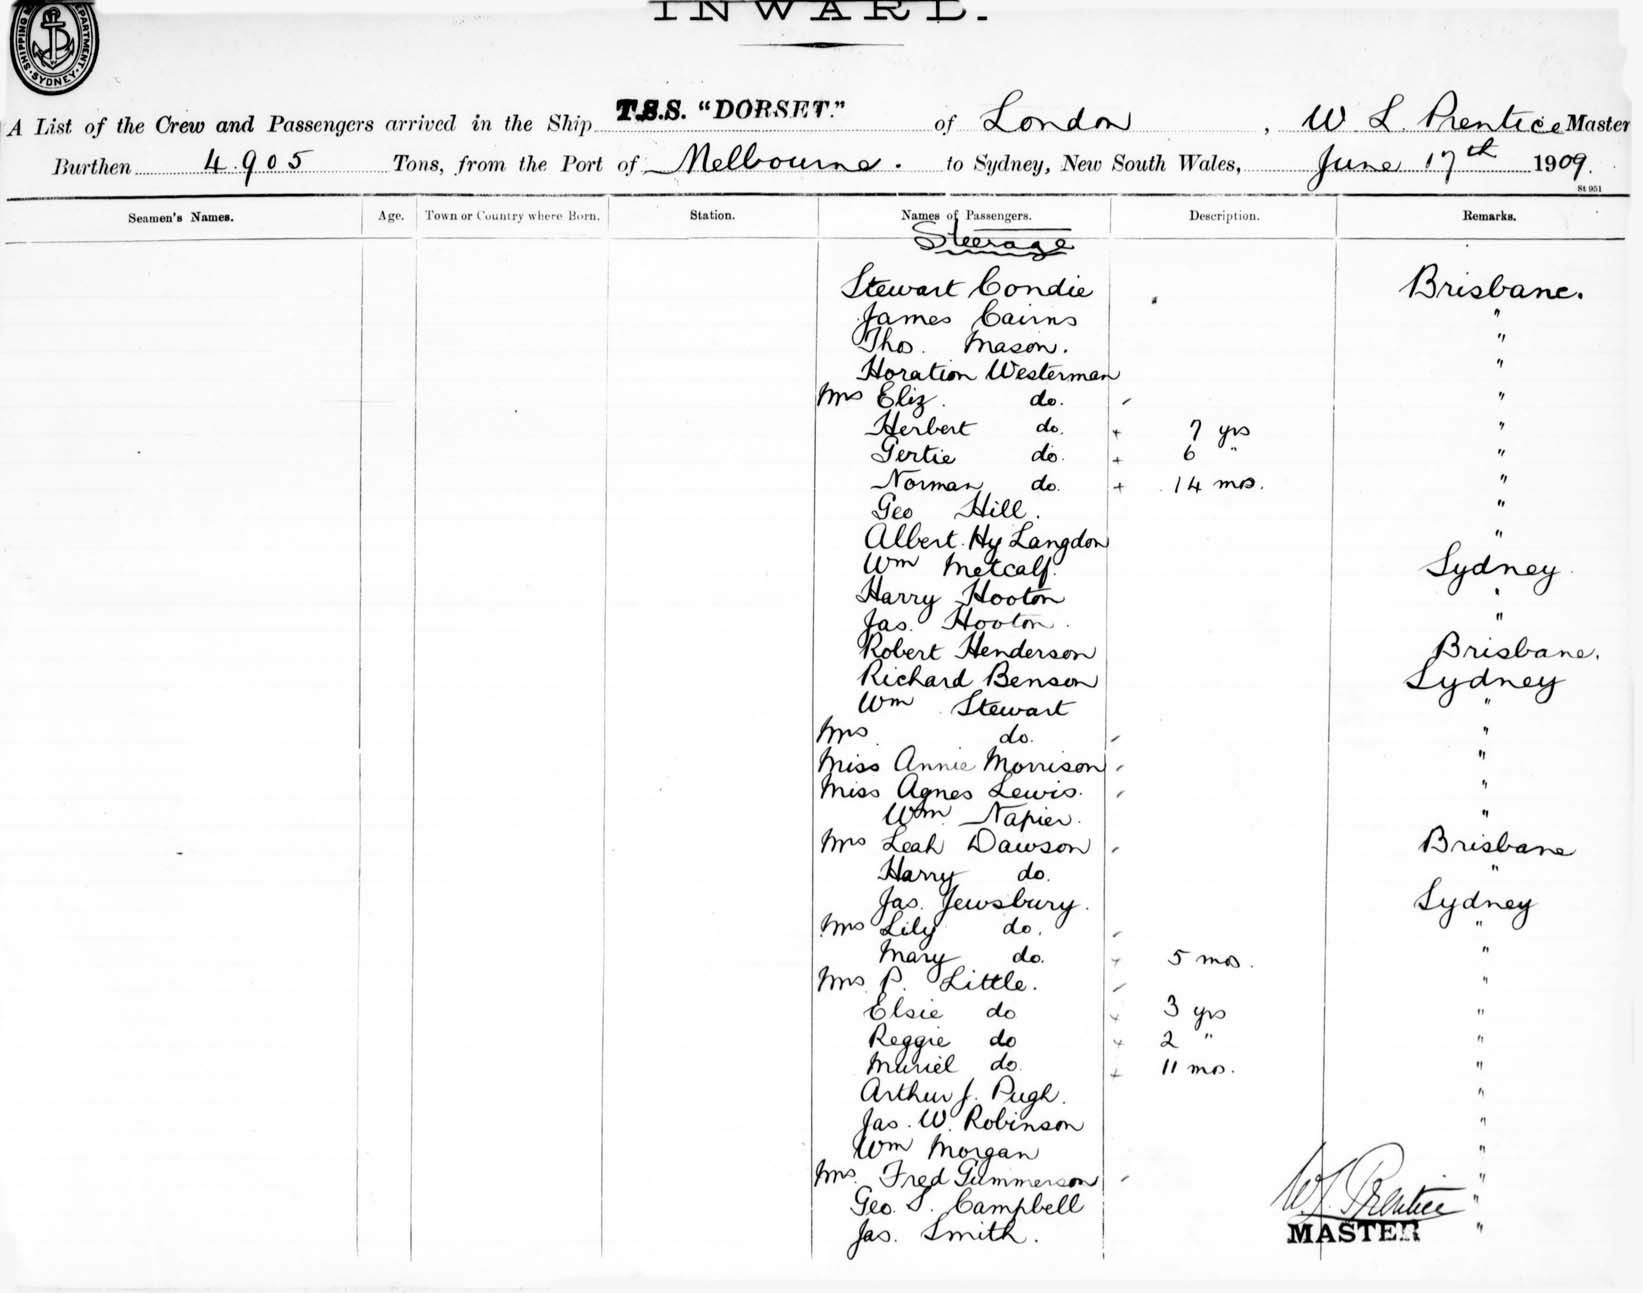 INWARD.
SHIPPING DEPARTMENT. SYDNEY.
A List of the Crew and Passengers arrived in the Ship T.S.S. "DORSET." of London, W L. Prentice Master
Burthen 4.905 Tons, from the Port of Melbourne. to Sydney, New South Wales, June 17th 1909.
St 951
Seamen's Names. Age. Town or Country where Born. Station. Names of Passengers. Description. Remarks.
Steerage
Stewart Condie Brisbane.
James Cairns "
Thos. Mason. "
Horation Westerman "
Mrs Eliz. do. "
Herbert do. + 7 yrs "
Gertie do. + 6 " "
Norman do. + 14 mos. "
Geo Hill. "
Albert. Hy Langdon "
Wm Metcalf. Sydney
Harry Hooton "
Jas. Hooton. "
Robert Henderson Brisbane.
Richard Benson Sydney
Wm Stewart "
Mrs do. "
Miss Annie Morrison "
Miss Agnes Lewis. "
Wm. Napier. "
Mrs Leah Dawson Brisbane
Harry do. "
Jas. Jewsbury. Sydney
Mrs Lily do. "
Mary do. + 5 mos. "
Mrs P. Little. "
Elsie do + 3 yrs "
Reggie do + 2 " "
Muriel do. + 11 mos. "
Arthur J. Pugh. "
Jas. W. Robinson "
Wm Morgan "
Mrs. Fred Gummerson "
Geo. S. Campbell W L Prentice "
Jas. Smith. MASTER "